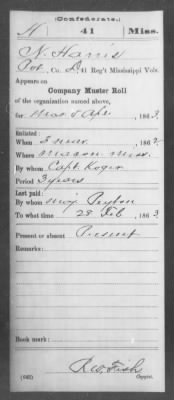 (Confederate.)
H 41 Miss.
N. Harris
Pvt., Co. D, 41 Reg't Mississippi Vols.
Appears on
Company Muster Roll
of the organization named above,
for Mar & Apr, 1863.
Enlisted:
When 3 Mar, 1862.
Where Macon Miss.
By whom Capt. Koger
Period 3 years
Last paid:
By whom Maj Peyton
To what time 28 Feb, 1863.
Present or absent Present
Remarks:
Book mark:
R W Fish
(642) Copyist.